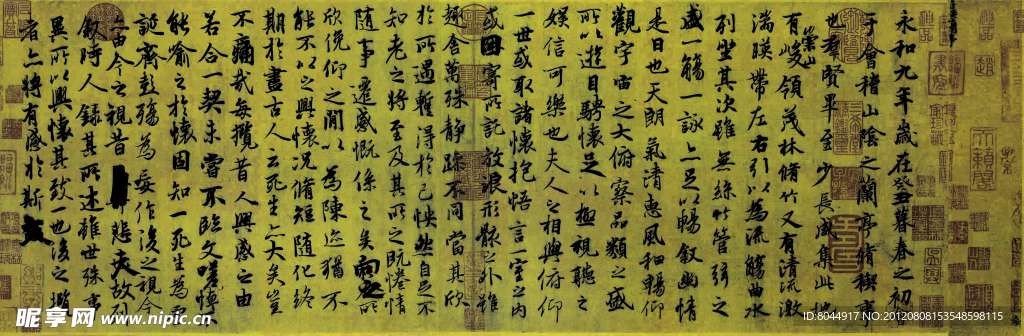 永和九年歲在癸丑暮春之初會
于會稽山陰之蘭亭脩禊事
也群賢畢至少長咸集此地
有崇山峻領茂林脩竹又有清流激
湍暎帶左右引以為流觴曲水
列坐其次雖無絲竹管弦之
盛一觴一詠亦足以暢叙幽情
是日也天朗氣清惠風和暢仰
觀宇宙之大俯察品類之盛
所以遊目騁懷足以極視聽之
娛信可樂也夫人之相與俯仰
一世或取諸懷抱悟言一室之內
或因寄所託放浪形骸之外雖
趣舍萬殊靜躁不同當其欣
於所遇暫得於己怏然自足不
知老之將至及其所之既惓情
隨事遷感慨係之矣向之所
欣俛仰之閒以為陳迹猶不
能不以之興懷況脩短隨化終
期於盡古人云死生亦大矣豈
不痛哉每攬昔人興感之由
若合一契未嘗不臨文嗟悼不
能喻之於懷固知一死生為虛
誕齊彭殤為妄作後之視今
亦由今之視昔悲夫故列
敘時人錄其所述雖世殊事
異所以興懷其致一也後之攬
者亦將有感於斯文
昵享网 www.nipic.cn
ID:8044917 NO:20120808153548598115